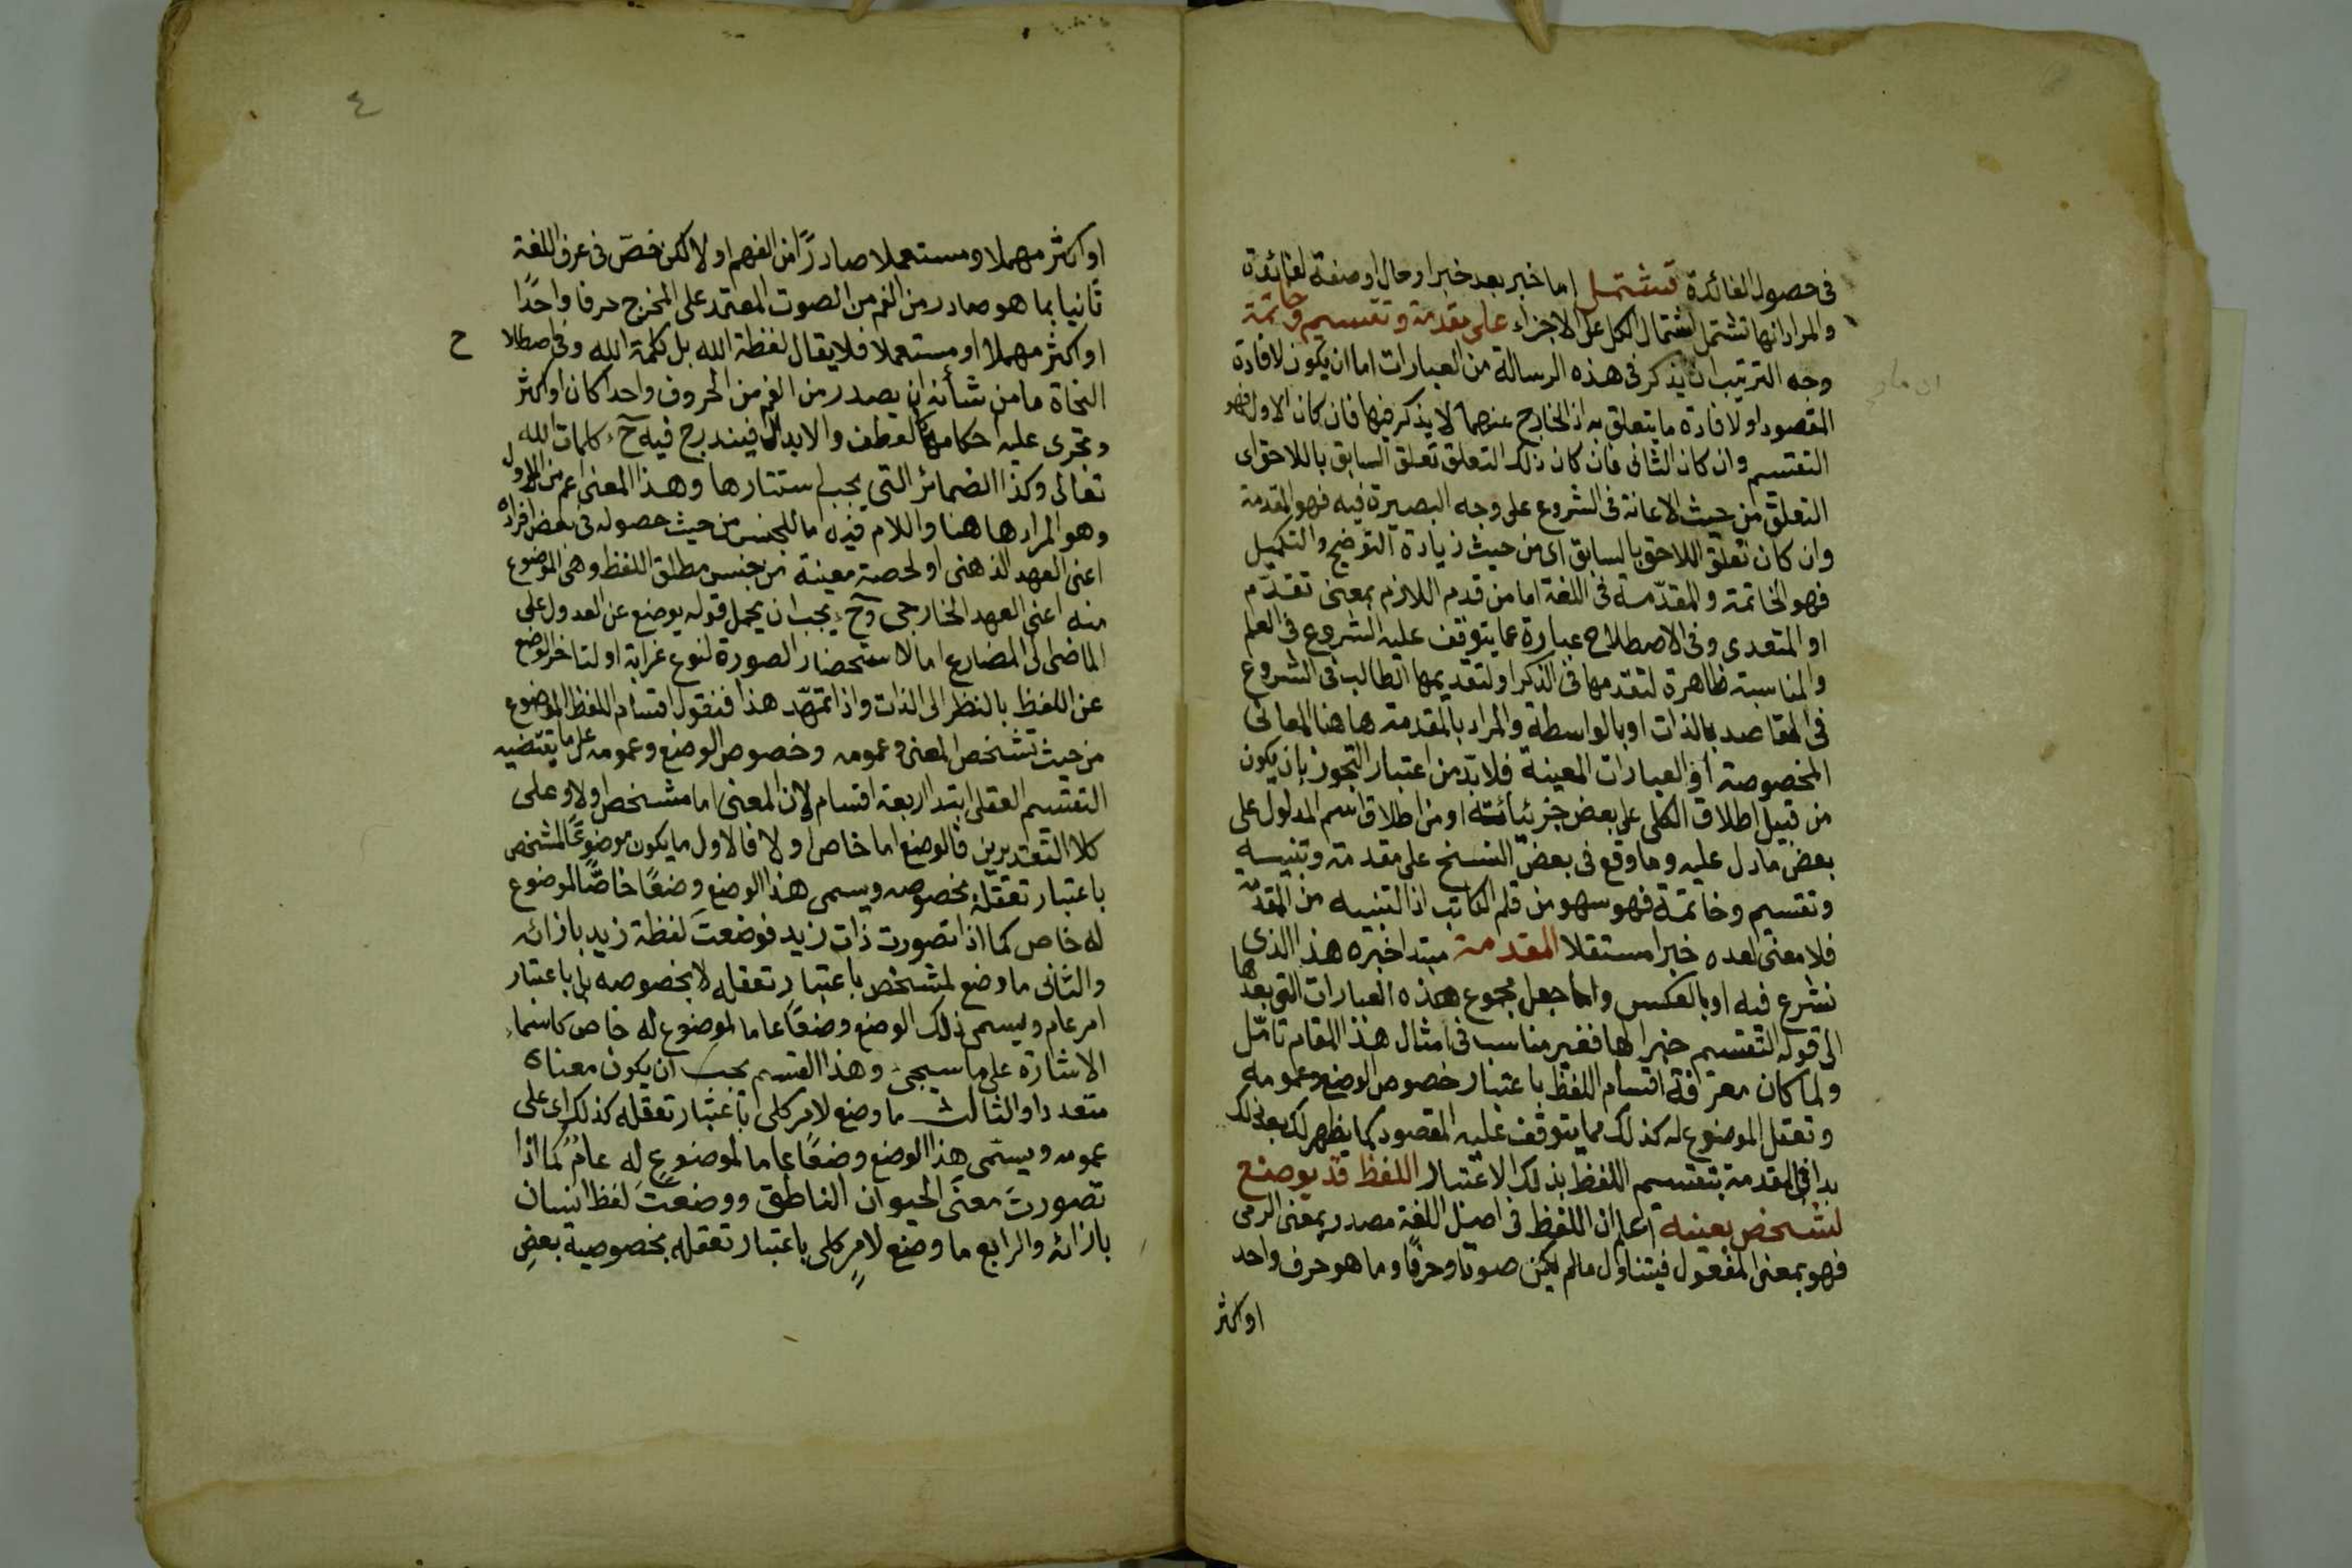 في حصول الفائدة تشتمل اما خبر بعد خبر او حال او صفة لفائدة
والمراد انها تشتمل اشتمال الكل على الاجزاء على مقدمة وتقسيم وخاتمة
وجه الترتيب ان يذكر في هذه الرسالة من العبارات اما ان يكون لافادة
المقصود او لافادة ما يتعلق به اذ الخارج عنهما لا يذكر فيها فان كان الاول فهو
التقسيم وان كان الثاني فان كان ذلك التعلق تعلق السابق باللاحق اى
التعلق من حيث الاعانة في الشروع على وجه البصيرة فيه فهو المقدمة
وان كان تعلق اللاحق بالسابق اى من حيث زيادة التوضيح والتكميل
فهو الخاتمة والمقدّمة في اللغة اما من قدم اللازم بمعنى تقدّم
او المتعدى وفي الاصطلاح عبارة عما يتوقف عليه الشروع في العلم
والمناسبة ظاهرة لتقدّمها في الذكر او لتقديمها الطالب في الشروع
في المقاصد بالذات او بالواسطة والمراد بالمقدمة هاهنا المعانى
المخصوصة او العبارات المعينة فلا بدّ من اعتبار التجوز بان يكون
من قبيل اطلاق الكلى على بعض جزئياته او من اطلاق اسم المدلول على
بعض ما دل عليه وما وقع في بعض النسخ على مقدمة وتنبيه
وتقسيم وخاتمة فهو سهو من قلم الكاتب اذ التنبيه من المقدّ
فلا معنى لعده خبرا مستقلا المقدمة مبتدا خبره هذا الذى
نشرع فيه او بالعكس واما جعل مجموع هذه العبارات التى بعدها
الى قوله التقسيم خبرا لها فغير مناسب في امثال هذا المقام تامّل
ولما كان معرفة اقسام اللفظ باعتبار خصوص الوضع وعمومه
وتعقل الموضوع له كذلك مما يتوقف عليه المقصود كما يظهر لك بعد ذلك
بدا في المقدمة بتقسيم اللفظ بذلك الاعتبار اللفظ قد يوضع
لشخص بعينه اعلم ان اللفظ في اصل اللغة مصدر بمعنى الرمى
فهو بمعنى المفعول فيتناول ما لم يكن صوتا وحرفًا وما هو حرف واحد
او اكثر
٤
او اكثر مهملا ومستعملا صادرًا من الفهم او لا لكن خصّ في عرف اللغة
ثانيا بما هو صادر من الفم من الصوت المعتمد على المخرج حرفا واحدًا
او اكثر مهملا او مستعملا فلا يقال لفظة الله بل كلمة الله وفي اصطلا ح
النحاة ما من شأنه ان يصدر من الفم من الحروف واحدا كان او اكثر
وتجرى عليه احكامها كالعطف والابدال فيندرج فيه ح كلمات الله
تعالى وكذا الضمائر التى يجب استتارها وهذا المعنى اعم من الاول
وهو المراد هاهنا واللام فيه اما للجنس من حيث حصوله في بعض افراده
اعنى العهد الذهنى او لحصة معينة من جنس مطلق اللفظ وهى الموضوع
منه اعنى العهد الخارجى وح يجب ان يحمل قوله يوضع عن العدول على
الماضى الى المضارع اما لاستحضار الصورة لنوع غرابة او لتاخر الوضع
عن اللفظ بالنظر الى الذات واذا تمهّد هذا فنقول اقسام اللفظ الموضوع
من حيث تشخص المعنى وعمومه وخصوص الوضع وعمومه على ما يقتضيه
التقسيم العقلى ابتدا اربعة اقسام لان المعنى اما مشخص اولا وعلى
كلا التقديرين فالوضع اما خاص او لا فالاول ما يكون موضوعًا لمشخص
باعتبار تعقله بخصوصه ويسمى هذا الوضع وضعًا خاصًّا لموضوع
له خاص كما اذا تصورت ذات زيد فوضعتَ لفظة زيد بازائه
والثانى ما وضع لمشخص باعتبار تعقله لا بخصوصه بل باعتبار
امر عام ويسمى ذلك الوضع وضعًا عاما لموضوع له خاص كاسماء
الاشارة على ما سيجئ وهذا القسم يجب ان يكون معناه
متعددا والثالث ما وضع لامر كلى باعتبار تعقله كذلك اى على
عمومه ويسمّى هذا الوضع وضعًا عاما لموضوع له عامٌ كما اذا
تصورتَ معنى الحيوان الناطق ووضعتَ لفظ انسان
بازائه والرابع ما وضع لامرٍ كلى باعتبار تعقله بخصوصية بعضِ